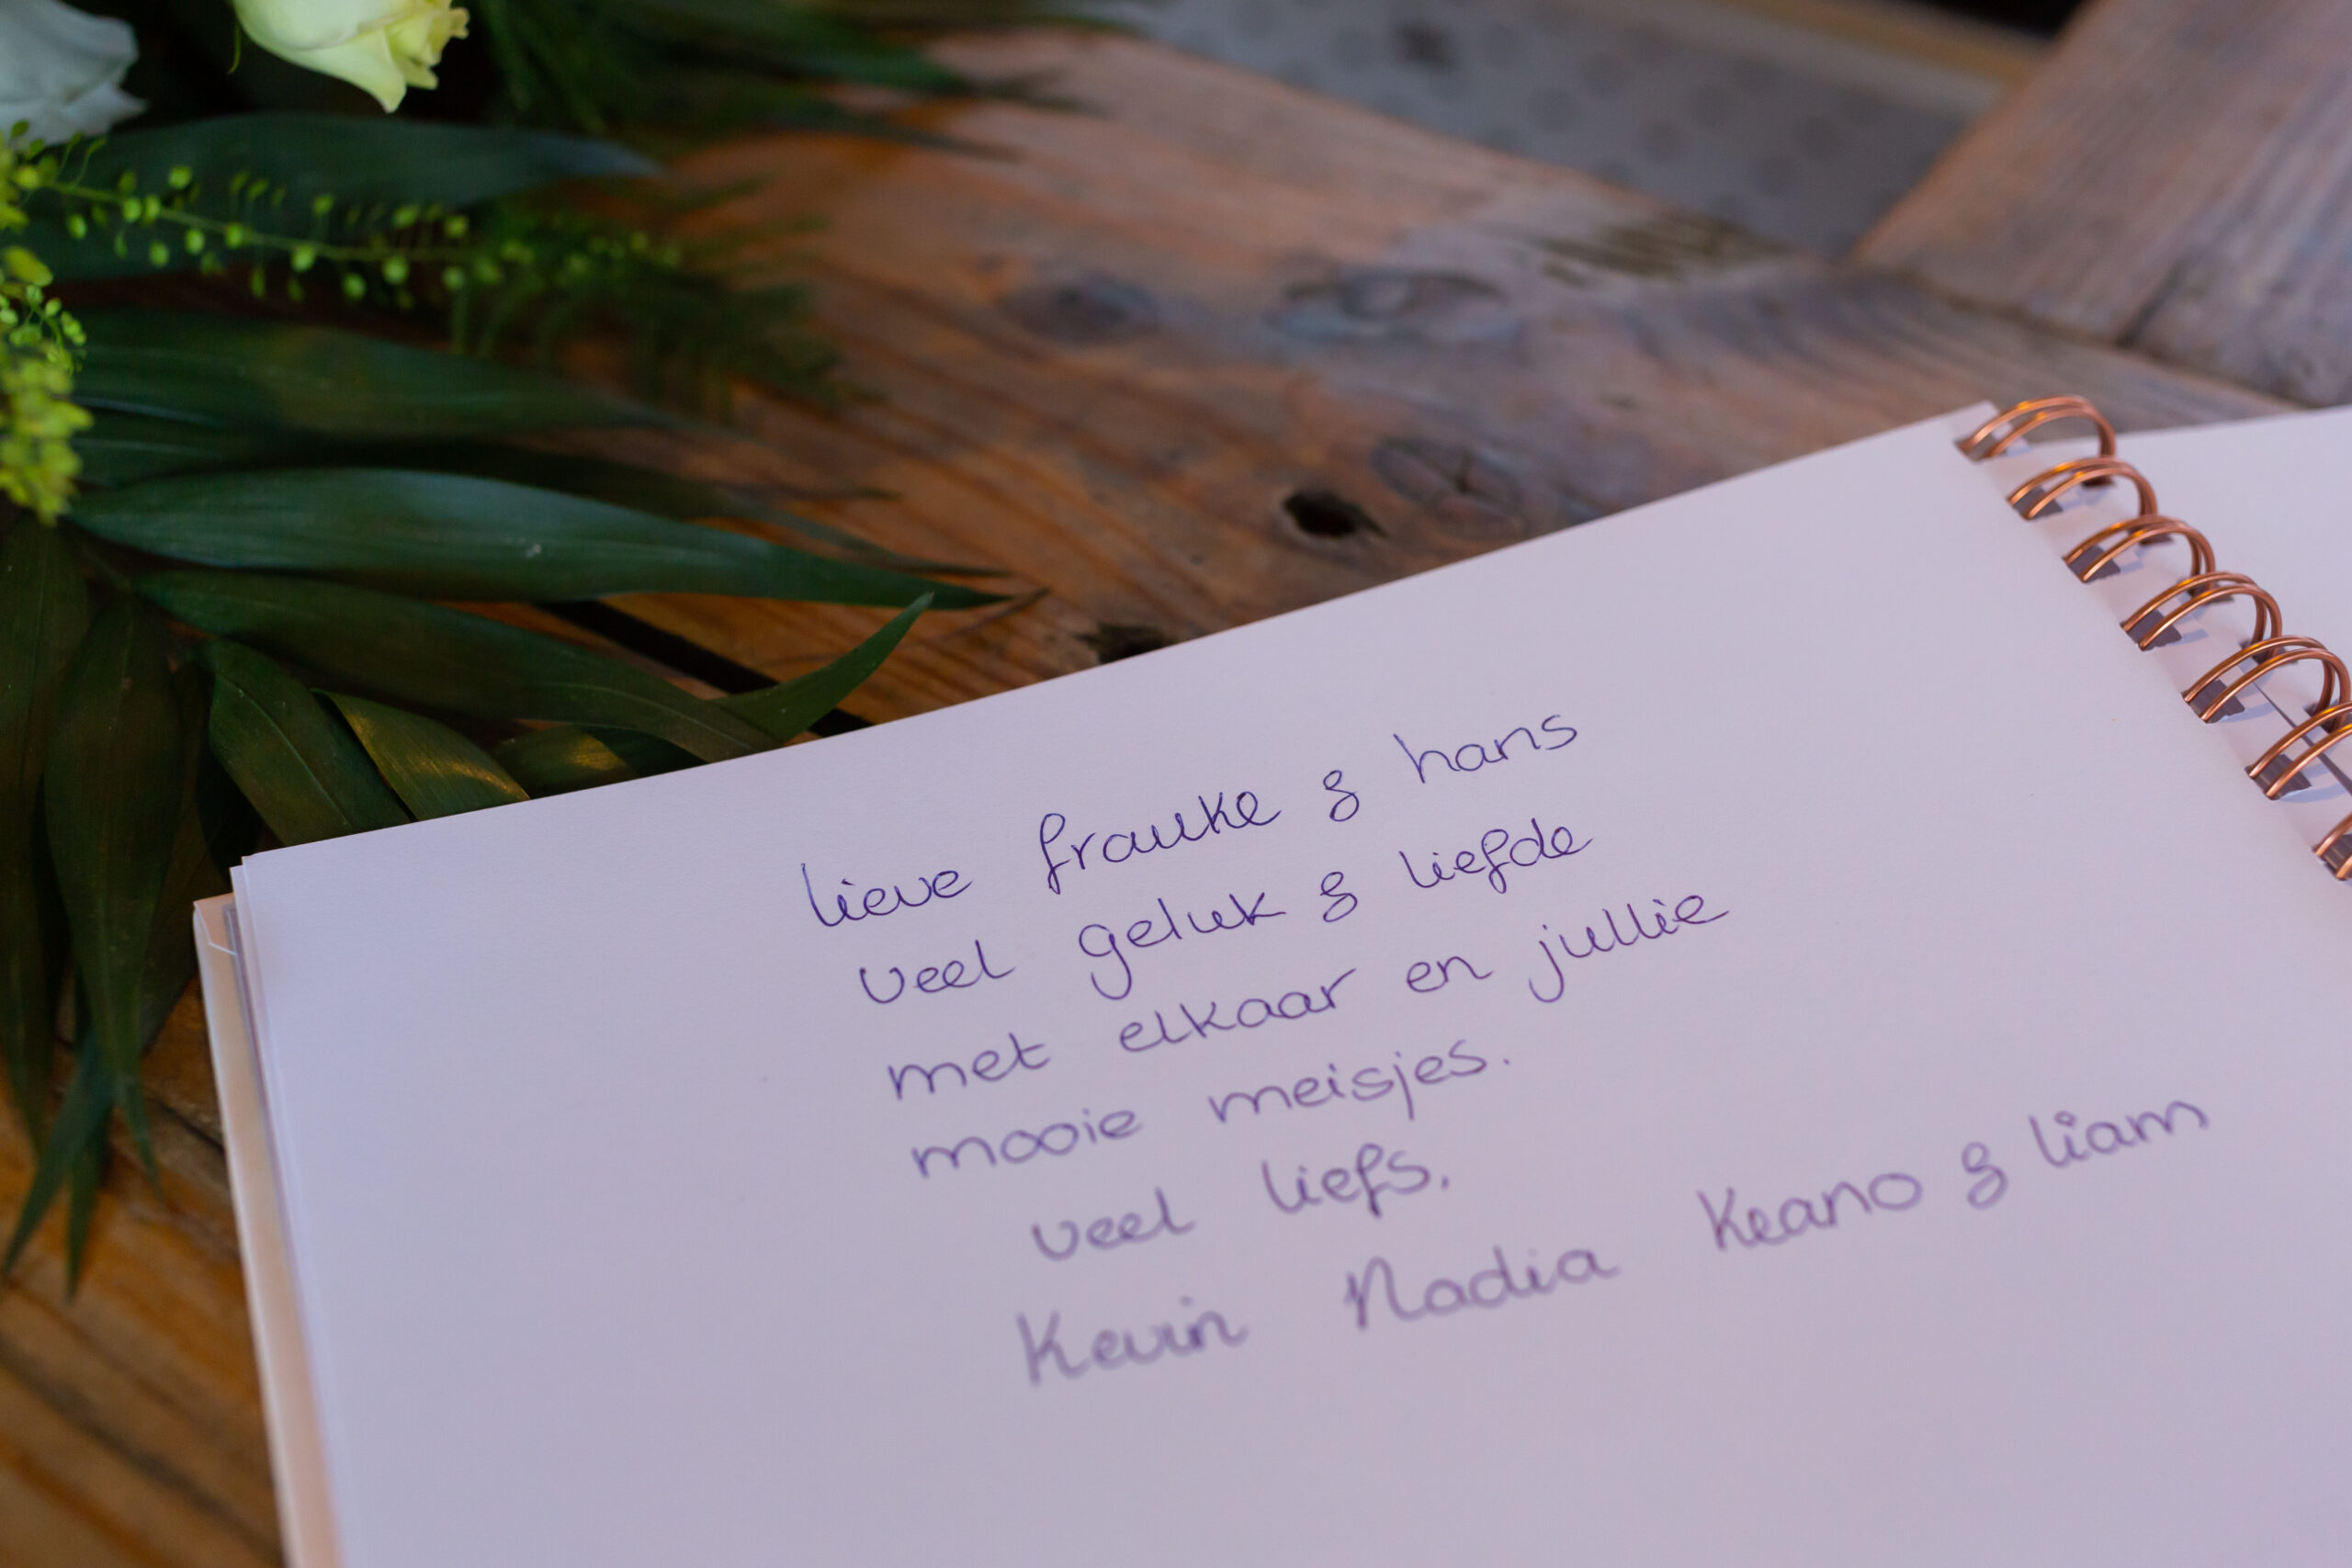 lieve frauke & hans
veel geluk & liefde
met elkaar en jullie
mooie meisjes.
veel liefs,
Kevin Nadia Keano & liam